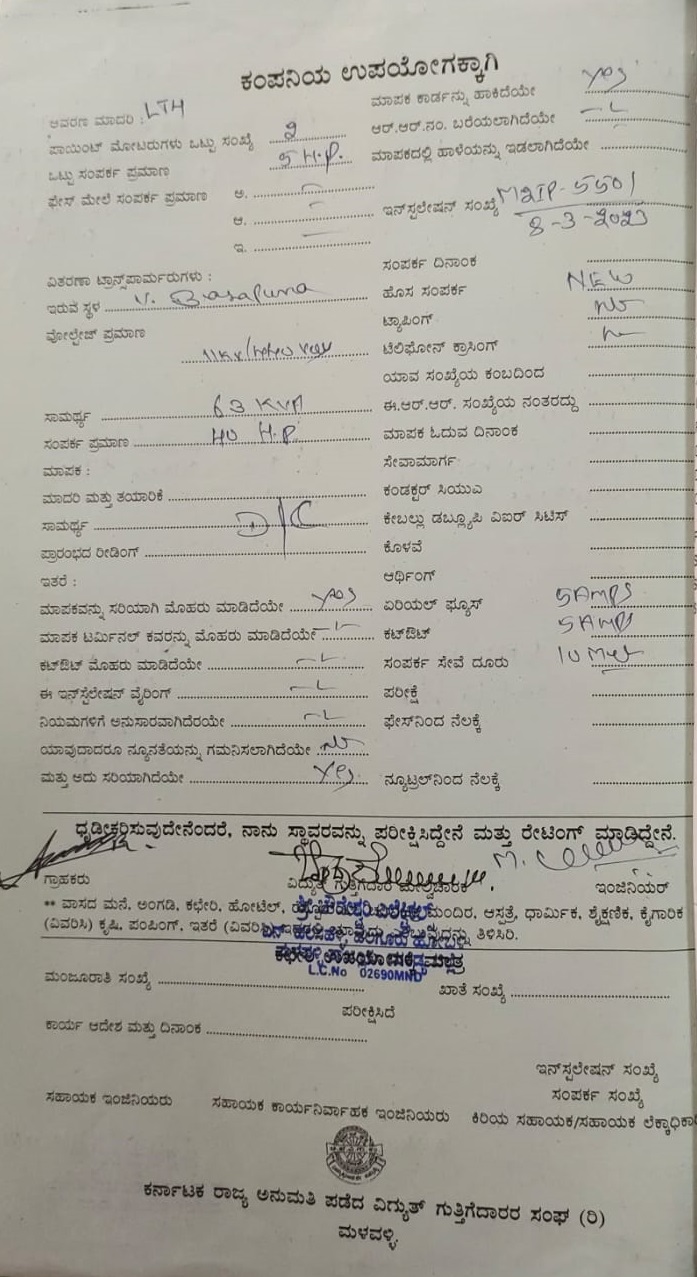 ಕಂಪನಿಯ ಉಪಯೋಗಕ್ಕಾಗಿ
ಆವರಣ ಮಾದರಿ : LTH
ಪಾಯಿಂಟ್ ಮೋಟರುಗಳು ಒಟ್ಟು ಸಂಖ್ಯೆ 2
ಒಟ್ಟು ಸಂಪರ್ಕ ಪ್ರಮಾಣ 5 H.P.
ಫೇಸ್ ಮೇಲೆ ಸಂಪರ್ಕ ಪ್ರಮಾಣ ಅ.
ಆ.
ಇ.
ವಿತರಣಾ ಟ್ರಾನ್ಸ್‌ಪಾರ್ಮರುಗಳು :
ಇರುವ ಸ್ಥಳ V. Basapura
ವೋಲ್ಟೇಜ್ ಪ್ರಮಾಣ
ಸಾಮರ್ಥ್ಯ 63 KVA
ಸಂಪರ್ಕ ಪ್ರಮಾಣ 40 H.P.
ಮಾಪಕ :
ಮಾದರಿ ಮತ್ತು ತಯಾರಿಕೆ
ಸಾಮರ್ಥ್ಯ D/C
ಪ್ರಾರಂಭದ ರೀಡಿಂಗ್
ಇತರೆ :
ಮಾಪಕವನ್ನು ಸರಿಯಾಗಿ ಮೊಹರು ಮಾಡಿದೆಯೇ yes
ಮಾಪಕ ಟರ್ಮಿನಲ್ ಕವರನ್ನು ಮೊಹರು ಮಾಡಿದೆಯೇ
ಕಟ್‌ಔಟ್ ಮೊಹರು ಮಾಡಿದೆಯೇ
ಈ ಇನ್‌ಸ್ಟಲೇಷನ್ ವೈರಿಂಗ್
ನಿಯಮಗಳಿಗೆ ಅನುಸಾರವಾಗಿದೆರಯೇ
ಯಾವುದಾದರೂ ನ್ಯೂನತೆಯನ್ನು ಗಮನಿಸಲಾಗಿದೆಯೇ No
ಮತ್ತು ಅದು ಸರಿಯಾಗಿದೆಯೇ Yes
ಮಾಪಕ ಕಾರ್ಡನ್ನು ಹಾಕಿದೆಯೇ yes
ಆರ್.ಆರ್.ನಂ. ಬರೆಯಲಾಗಿದೆಯೇ
ಮಾಪಕದಲ್ಲಿ ಹಾಳೆಯನ್ನು ಇಡಲಾಗಿದೆಯೇ
ಇನ್‌ಸ್ಪಲೇಷನ್ ಸಂಖ್ಯೆ M2IP-5501
8-3-2023
ಸಂಪರ್ಕ ದಿನಾಂಕ
ಹೊಸ ಸಂಪರ್ಕ NEW
ಟ್ಯಾಪಿಂಗ್ No
ಟೆಲಿಫೋನ್ ಕ್ರಾಸಿಂಗ್
ಯಾವ ಸಂಖ್ಯೆಯ ಕಂಬದಿಂದ
ಈ.ಆರ್.ಆರ್. ಸಂಖ್ಯೆಯ ನಂತರದ್ದು
ಮಾಪಕ ಓದುವ ದಿನಾಂಕ
ಸೇವಾಮಾರ್ಗ
ಕಂಡಕ್ಟರ್ ಸಿಯುಎ
ಕೇಬಲ್ಲು ಡಬ್ಲ್ಯೂಪಿ ವಿಐರ್ ಸಿಟಿಸ್
ಕೊಳವೆ
ಆರ್ಥಿಂಗ್
ಏರಿಯಲ್ ಫ್ಯೂಸ್ 5 AMPS
ಕಟ್‌ಔಟ್ 5 AMPS
ಸಂಪರ್ಕ ಸೇವೆ ದೂರು 10 Met
ಪರೀಕ್ಷೆ
ಫೇಸ್‌ನಿಂದ ನೆಲಕ್ಕೆ
ನ್ಯೂಟ್ರಲ್‌ನಿಂದ ನೆಲಕ್ಕೆ
ಧೃಡೀಕರಿಸುವುದೇನೆಂದರೆ, ನಾನು ಸ್ಥಾವರವನ್ನು ಪರೀಕ್ಷಿಸಿದ್ದೇನೆ ಮತ್ತು ರೇಟಿಂಗ್ ಮಾಡಿದ್ದೇನೆ.
ಗ್ರಾಹಕರು ವಿದ್ಯುತ್ ಗುತ್ತಿಗೆದಾರ ಮೇಲ್ವಿಚಾರಕ ಇಂಜಿನಿಯರ್
** ವಾಸದ ಮನೆ, ಅಂಗಡಿ, ಕಛೇರಿ, ಹೋಟೆಲ್, ಮಂದಿರ, ಆಸ್ಪತ್ರೆ, ಧಾರ್ಮಿಕ, ಶೈಕ್ಷಣಿಕ, ಕೈಗಾರಿಕ
(ವಿವರಿಸಿ) ಕೃಷಿ, ಪಂಪಿಂಗ್, ಇತರೆ (ವಿವರಿಸಿ) ತಿಳಿಸಿರಿ.
L.C.No 02690MND
ಮಂಜೂರಾತಿ ಸಂಖ್ಯೆ ಖಾತೆ ಸಂಖ್ಯೆ
ಪರೀಕ್ಷಿಸಿದೆ
ಕಾರ್ಯ ಆದೇಶ ಮತ್ತು ದಿನಾಂಕ
ಇನ್‌ಸ್ಪಲೇಷನ್ ಸಂಖ್ಯೆ
ಸಂಪರ್ಕ ಸಂಖ್ಯೆ
ಸಹಾಯಕ ಇಂಜಿನಿಯರು ಸಹಾಯಕ ಕಾರ್ಯನಿರ್ವಾಹಕ ಇಂಜಿನಿಯರು ಕಿರಿಯ ಸಹಾಯಕ/ಸಹಾಯಕ ಲೆಕ್ಕಾಧಿಕಾರಿ
ಕರ್ನಾಟಕ ರಾಜ್ಯ ಅನುಮತಿ ಪಡೆದ ವಿದ್ಯುತ್ ಗುತ್ತಿಗೆದಾರರ ಸಂಘ (ರಿ)
ಮಳವಳ್ಳಿ.